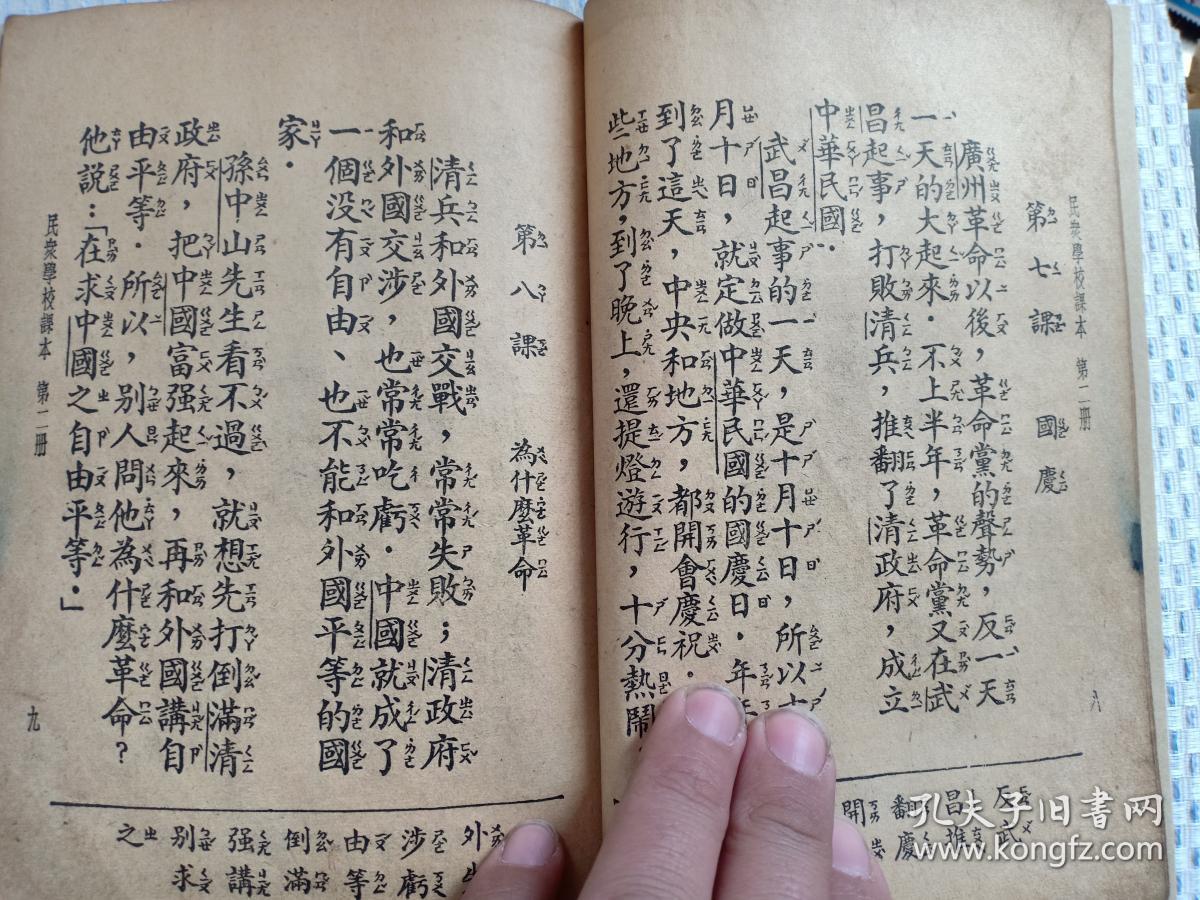 民衆學校課本 第二册
八
第七課 國慶
廣州革命以後，革命黨的聲勢，反一天
一天的大起來．不上半年，革命黨又在武
昌起事，打敗清兵，推翻了清政府，成立
中華民國．
武昌起事的一天，是十月十日，所以十
月十日，就定做中華民國的國慶日．年
到了這天，中央和地方，都開會慶祝．
些地方，到了晚上，還提燈遊行，十分熱鬧
反武
昌推
翻慶
開
第八課 為什麼革命
清兵和外國交戰，常常失敗；清政府
和外國交涉，也常常吃虧．中國就成了
一個没有自由、也不能和外國平等的國
家．
孫中山先生看不過，就想先打倒滿清
政府，把中國富强起來，再和外國講自
由平等．所以，别人問他為什麼革命？
他説：「在求中國之自由平等．」
外
涉虧
由等
倒滿
强講
别求
之
民衆學校課本 第二册
九
孔夫子旧书网
www.kongfz.com